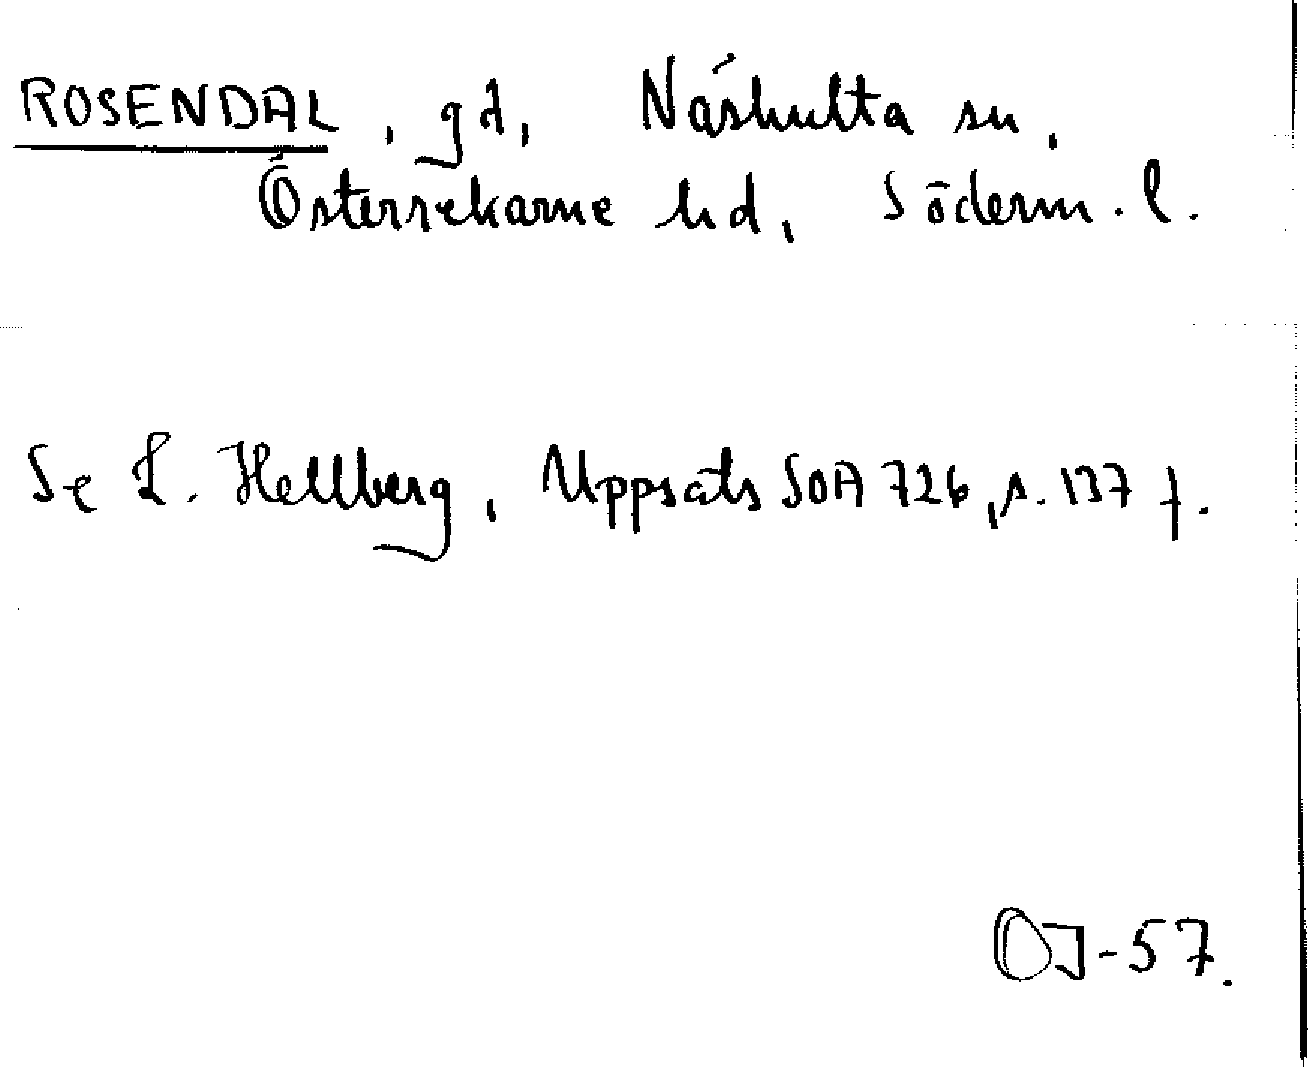 ROSENDAL, gd, Näshulta sn,
Österrekarne hd, Söderm. l.
Se L. Hellberg, Uppsats SOA 726, s. 137 f.
OJ-57.